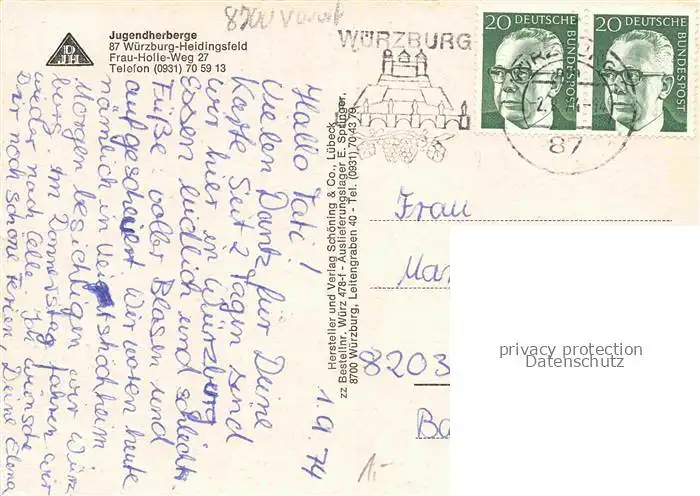 8700
Jugendherberge
87 Würzburg-Heidingsfeld
Frau-Holle-Weg 27
Telefon (0931) 70 59 13
DJH
WÜRZBURG
20 DEUTSCHE BUNDESPOST
20 DEUTSCHE BUNDESPOST
87
1.9.74
Hallo Tati!
Vielen Dank für Deine
Karte. Seit 2 Tagen sind
wir hier in Würzburg
Essen und schlecht.
Füße voller Blasen und
aufgescheuert. Wir waren heute
nämlich in Veitshöchheim
Morgen besichtigen wir Würz-
burg. Im Donnerstag fahren wir
wieder nach Celle. Ich wünsche
Dir noch schöne Ferien, Deine Elena
Hersteller und Verlag Schöning & Co., Lübeck
zz Bestellnr. Würz 478-f - Auslieferungslager E. Springer,
8700 Würzburg, Leitengraben 40 - Tel. (0931) 70 43 79
Frau
8203
1,-
privacy protection
Datenschutz